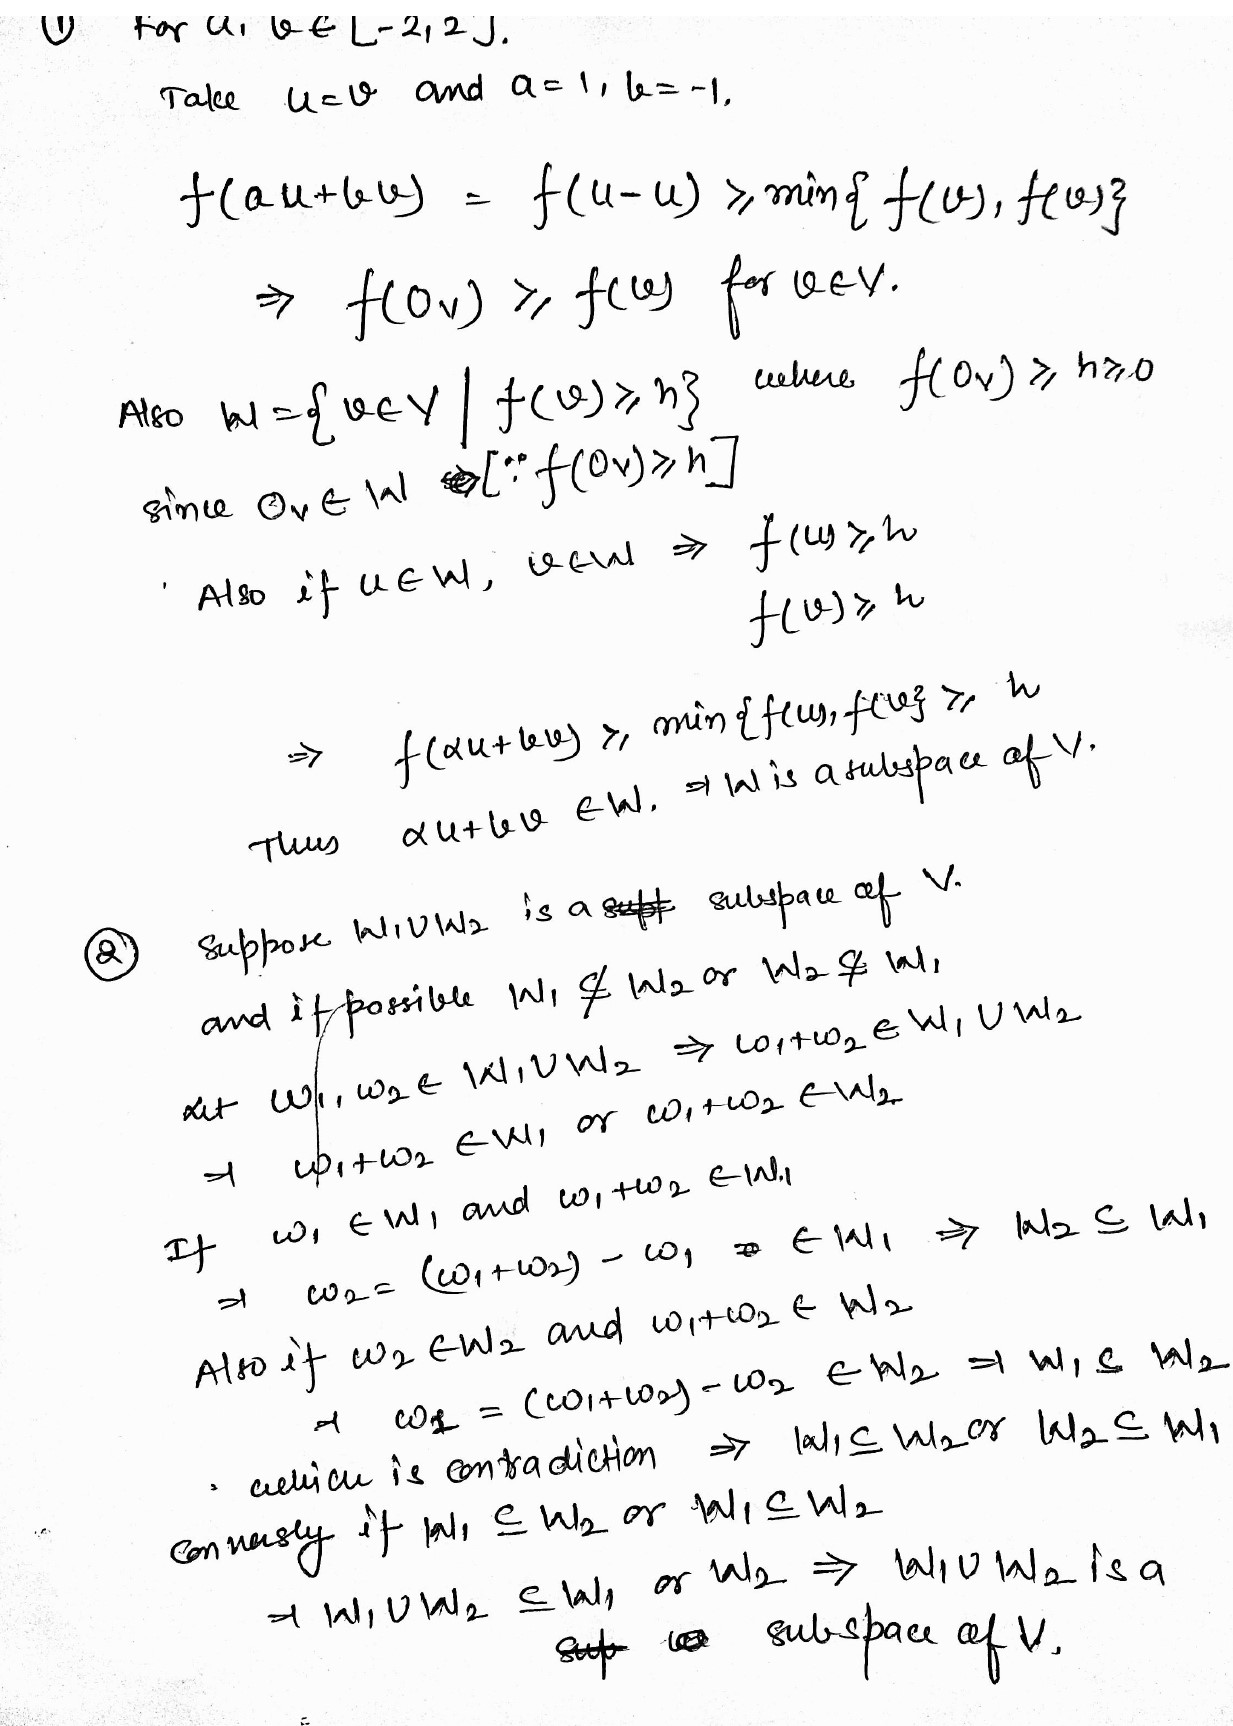 ① For u, v ∈ [-2, 2].
Take u = v and a = 1, b = -1.
f(au+bv) = f(u-u) ⩾ min{ f(v), f(v)}
⇒ f(0v) ⩾ f(v) for v∈V.
Also W = {v∈V | f(v) ⩾ h} where f(0v) ⩾ h ⩾ 0
since 0v ∈ W [∵ f(0v) ⩾ h]
Also if u ∈ W, v∈W ⇒ f(u) ⩾ h
f(v) ⩾ h
⇒ f(αu+bv) ⩾ min{f(u), f(v)} ⩾ h
Thus αu+bv ∈ W. ⇒ W is a subspace of V.
② Suppose W1∪W2 is a subspace of V.
and if possible W1 ⊈ W2 or W2 ⊈ W1
Let w1, w2 ∈ W1∪W2 ⇒ w1+w2 ∈ W1∪W2
⇒ w1+w2 ∈ W1 or w1+w2 ∈ W2
If w1 ∈ W1 and w1+w2 ∈ W1
⇒ w2 = (w1+w2) - w1 ∈ W1 ⇒ W2 ⊆ W1
Also if w2 ∈ W2 and w1+w2 ∈ W2
⇒ w1 = (w1+w2) - w2 ∈ W2 ⇒ W1 ⊆ W2
which is contradiction ⇒ W1 ⊆ W2 or W2 ⊆ W1
Conversly if W1 ⊆ W2 or W1 ⊆ W2
⇒ W1∪W2 ⊆ W1 or W2 ⇒ W1∪W2 is a
subspace of V.